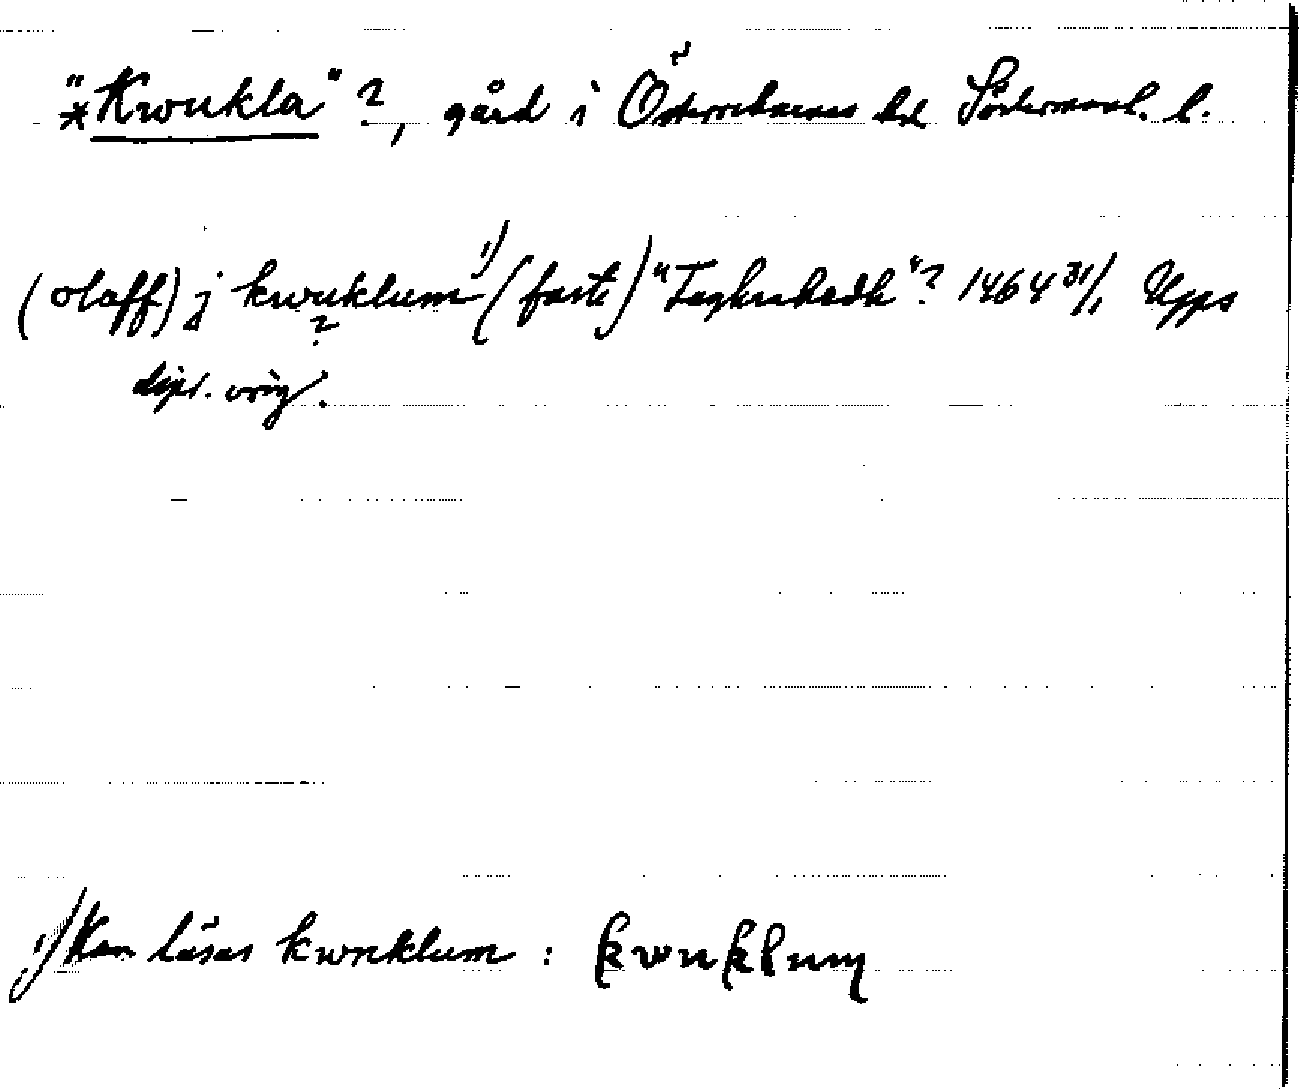 *"Kwukla"?, gård i Österrekarnes hd Södermanl. l.
(olaff) j kwuklum 1) (faste) "Teghnhedh"? 1464 31/1 Upps
?
dipl. orig.
1) Kan läsas kwnklum : kwuklum